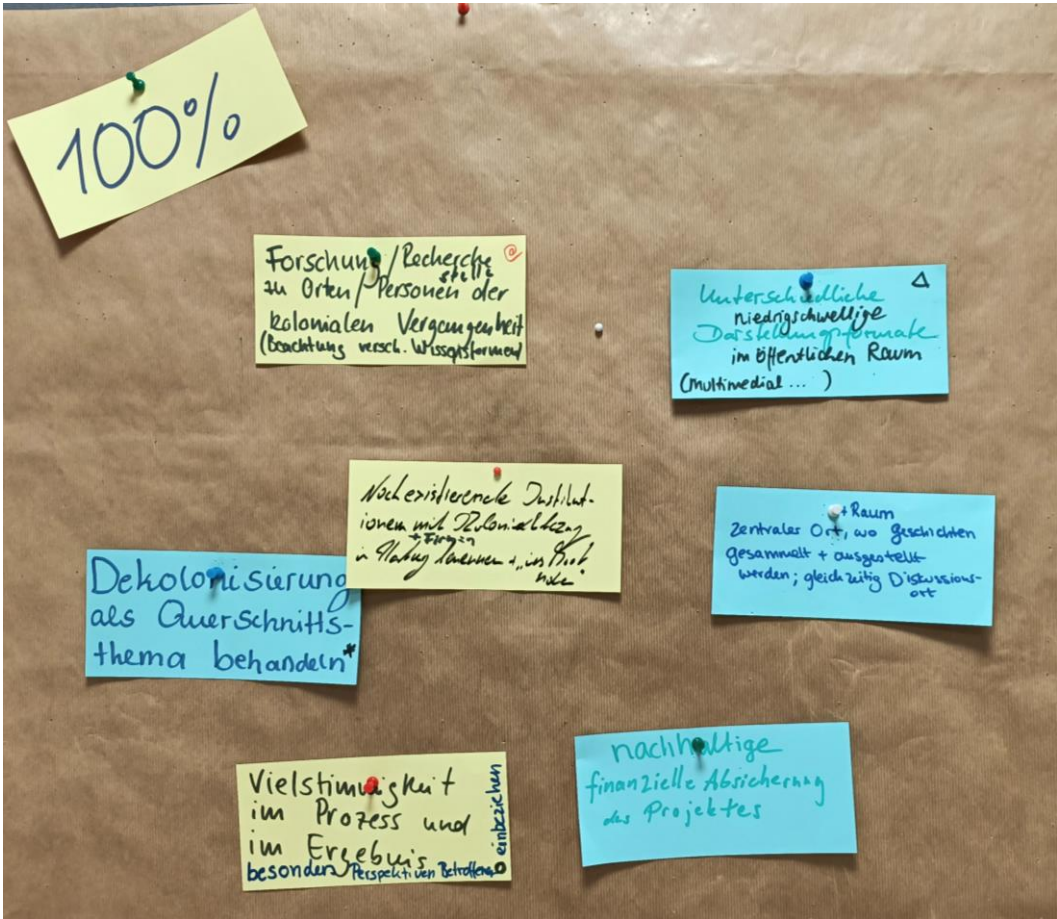 100%
Forschung/Recherche @
stelle
zu Orten/Personen der
kolonialen Vergangenheit
(Beachtung versch. Wissensformen)
Unterschiedliche △
niedrigschwellige
Darstellungsformate
im öffentlichen Raum
(multimedial ... )
Noch existierende Institut-
ionen mit Kolonialbezug
+ Firmen
in Haftung nehmen + "ins Boot
holen"
+ Raum
Zentraler Ort, wo Geschichten
gesammelt + ausgestellt
werden; gleichzeitig Diskussions-
ort
Dekolonisierung
als Querschnitts-
thema behandeln*
Vielstimmigkeit
im Prozess und
im Ergebnis
besonders Perspektiven Betroffener
einbeziehen
nachhaltige
finanzielle Absicherung
des Projektes